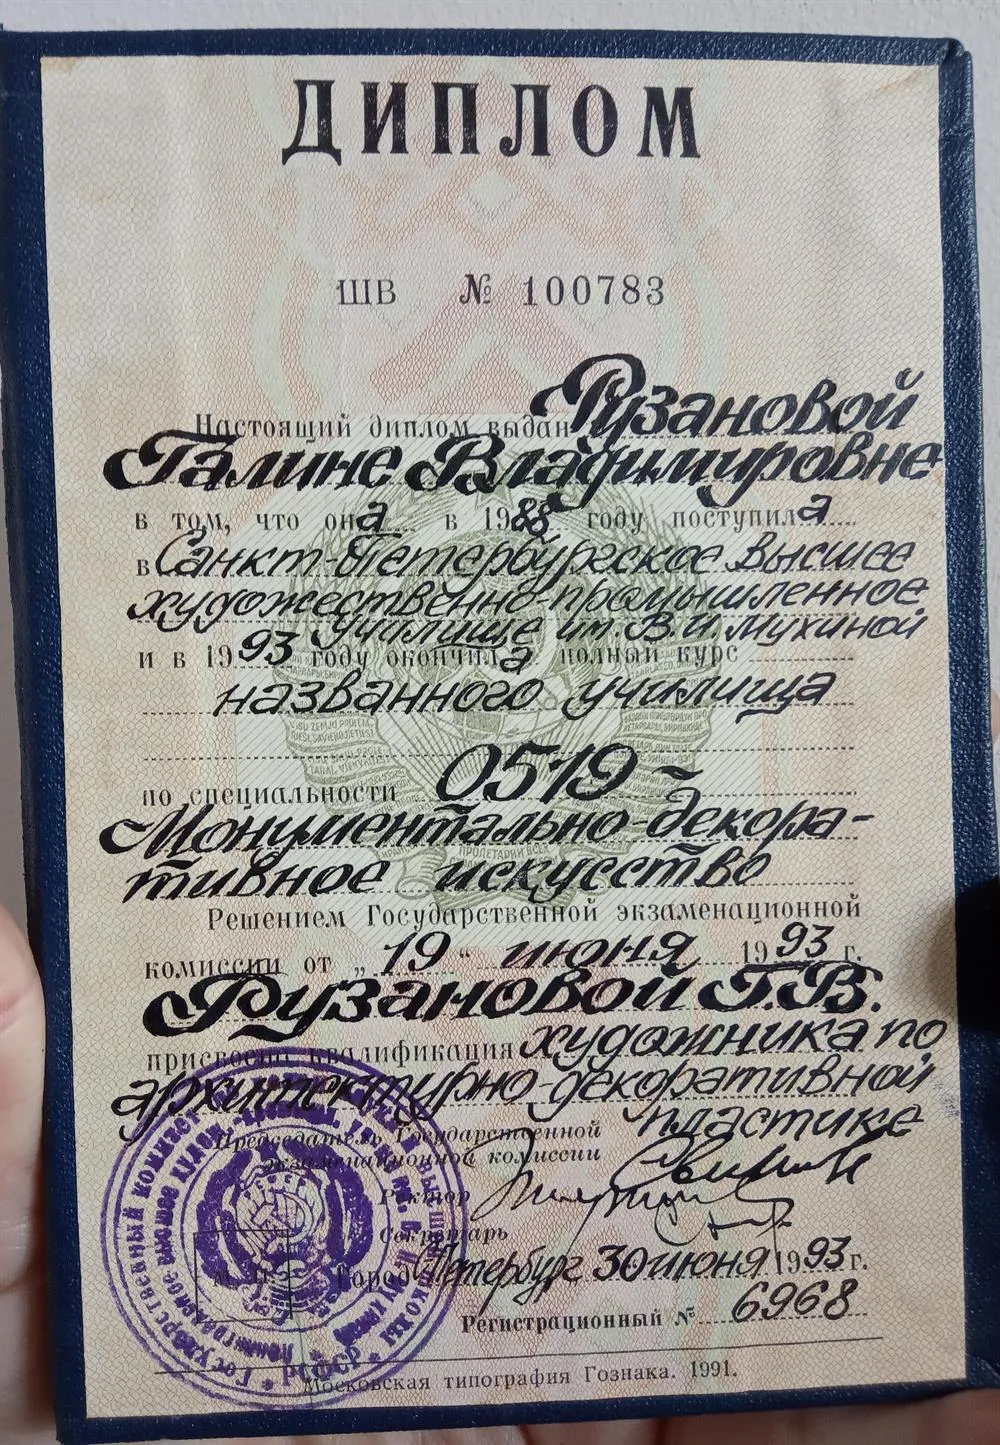 ДИПЛОМ
ШВ № 100783
Настоящий диплом выдан Рузановой
Галине Владимировне
в том, что она в 1988 году поступила
в Санкт-Петербургское высшее
художественно-промышленное
училище им. В.И. Мухиной
и в 1993 году окончила полный курс
названного училища
по специальности 0519 -
Монументально-декора-
тивное искусство
Решением Государственной экзаменационной
комиссии от „19“ июня 1993 г.
Рузановой Г.В.
присвоена квалификация художника по
архитектурно-декоративной
пластике
Председатель Государственной
экзаменационной комиссии
Ректор
Секретарь
М. П. Город С.Петербург 30 июня 1993 г.
Регистрационный № 6968
РСФСР
Московская типография Гознака. 1991.